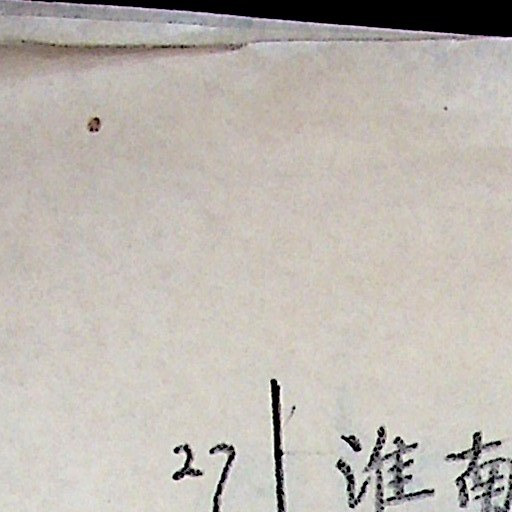 27 淮南